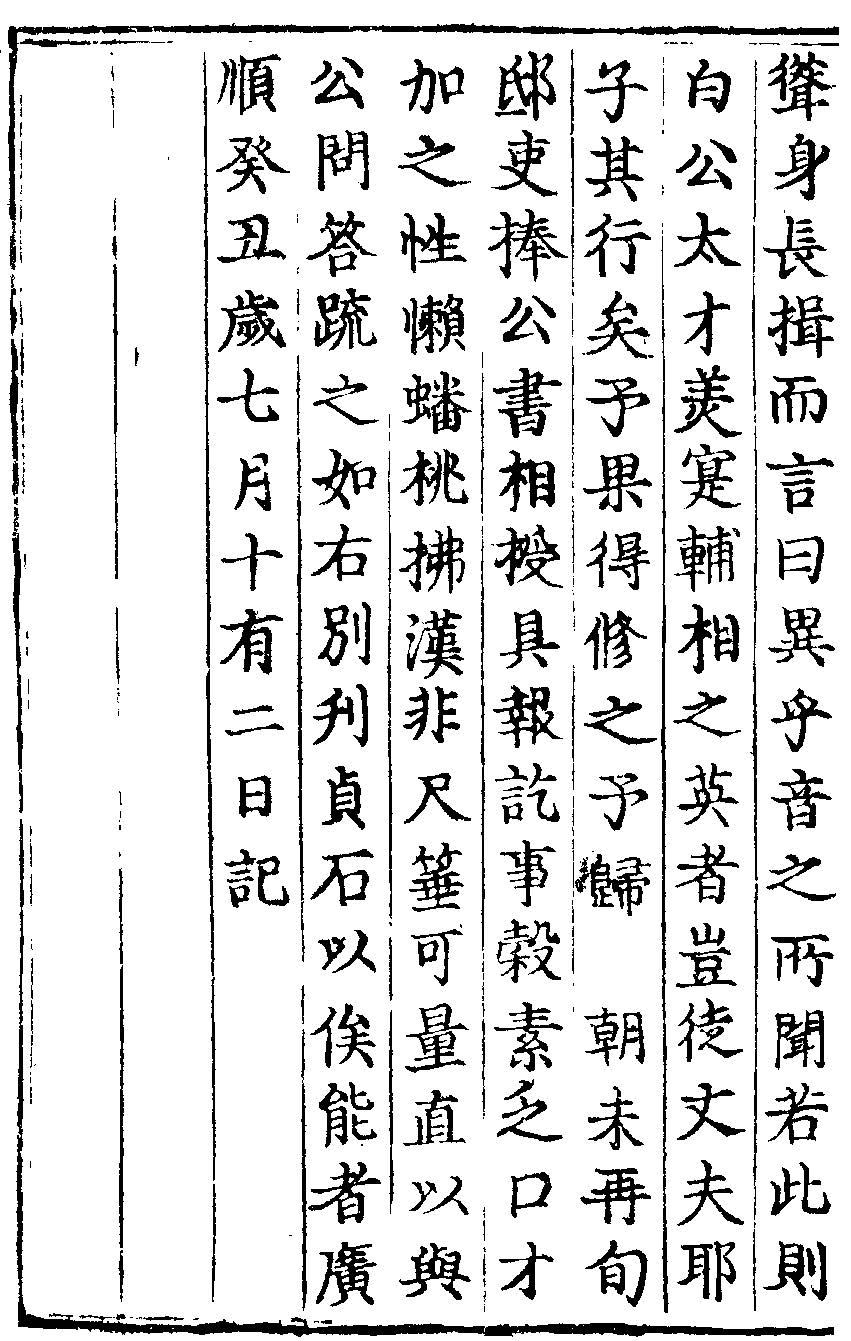 聳身長揖而言曰異乎音之所聞若此則
白公太才羙寔輔相之英者豈徒丈夫耶
子其行矣予果得修之予歸　朝未再旬
邸吏捧公書相授具報訖事榖素乏口才
加之性懶蟠桃拂漢非尺箠可量直以與
公問答䟽之如右别刋貞石以俟能者廣
順癸丑歲七月十有二日記